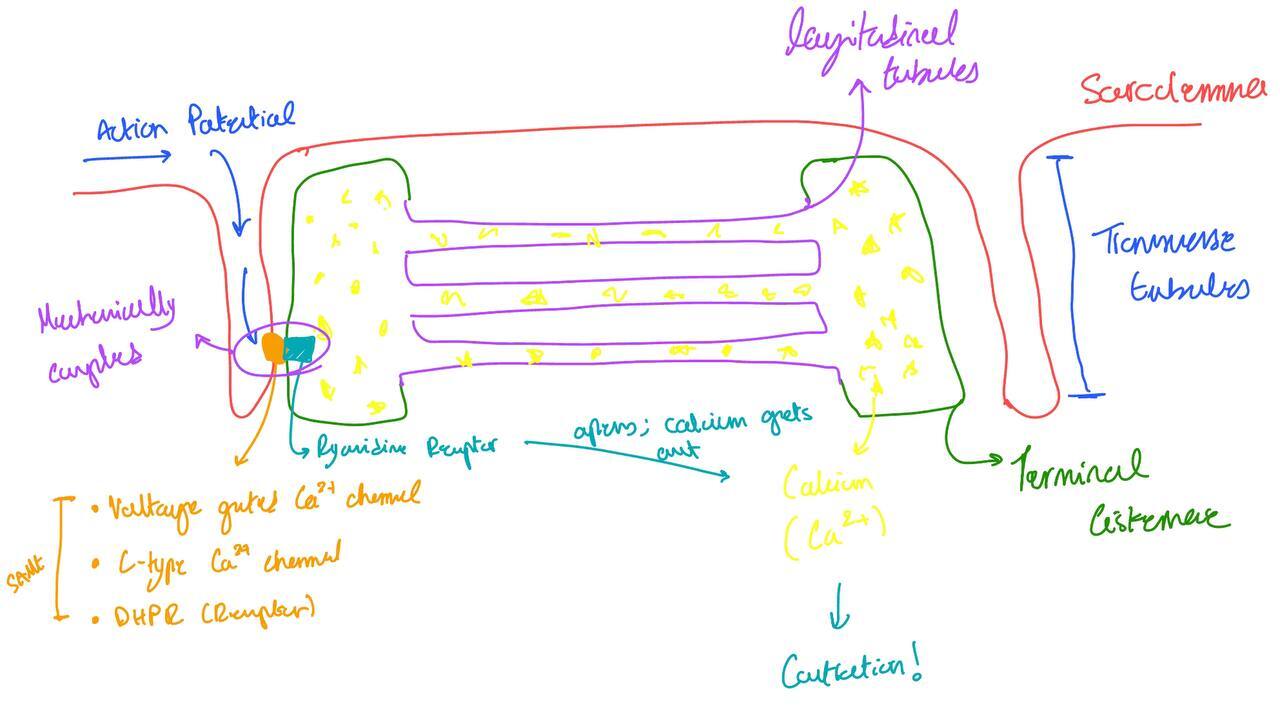 longitudinal
tubules
Sarcolemma
Action Potential
Transverse
tubules
Mechanically
couples
Ryanidine Receptor
opens; calcium gets
out
Calcium
(Ca²⁺)
Contraction!
Terminal
Cisternae
SAME
• Voltage gated Ca²⁺ channel
• L-type Ca²⁺ channel
• DHPR (Receptor)